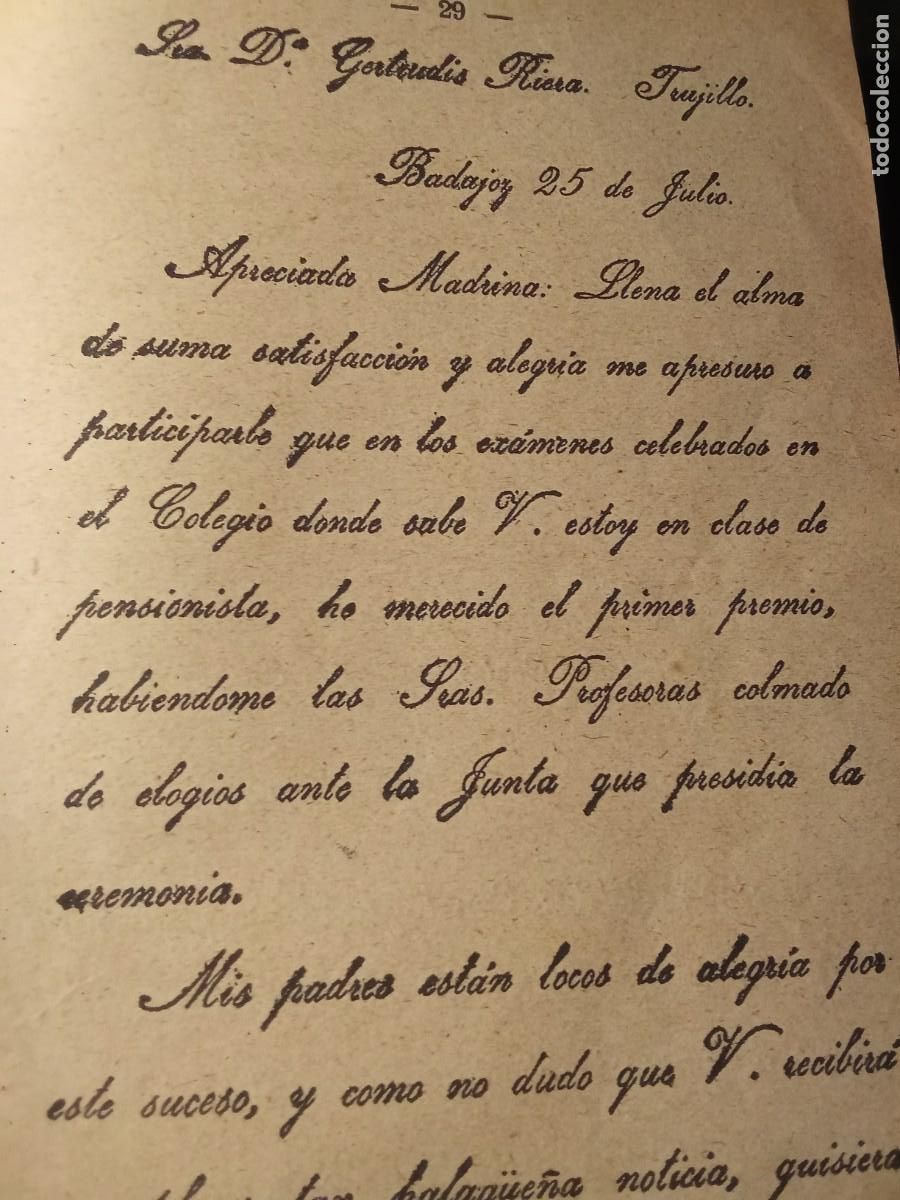 — 29 —
Sra D.ª Gertrudis Riera. Trujillo.
Badajoz 25 de Julio.
Apreciada Madrina: Llena el alma
de suma satisfacción y alegría me apresuro a
participarle que en los exámenes celebrados en
el Colegio donde sabe V. estoy en clase de
pensionista, he merecido el primer premio,
habiendome las Sras. Profesoras colmado
de elogios ante la Junta que presidia la
ceremonia.
Mis padres están locos de alegría por
este suceso, y como no dudo que V. recibirá
tan halagüeña noticia, quisiera
todocoleccion